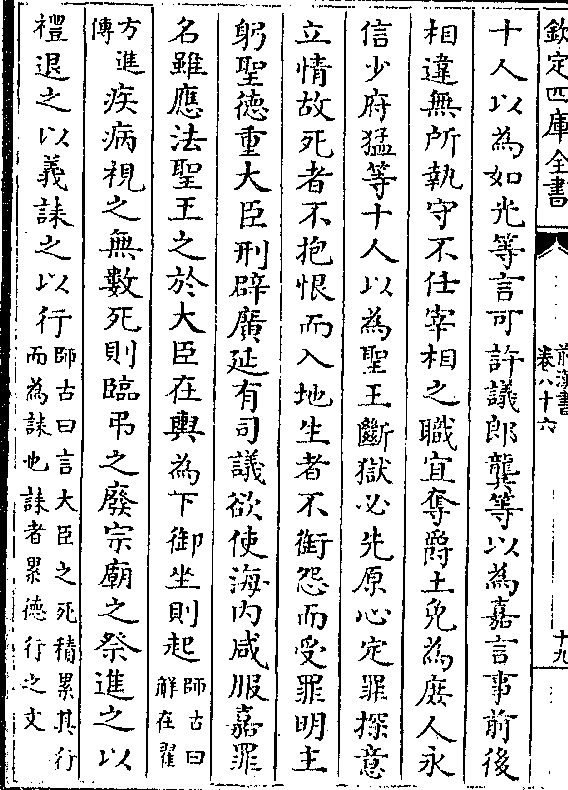 欽定四庫全書
前漢書
卷八十六
十九
十人以為如光等言可許議郎龔等以為嘉言事前後
相違無所執守不任宰相之職宜奪爵土免為庶人永
信少府猛等十人以為聖王斷獄必先原心定罪探意
立情故死者不抱恨而入地生者不銜怨而受罪明主
躬聖德重大臣刑辟廣延有司議欲使海内咸服嘉罪
名雖應法聖王之於大臣在輿為下御坐則起師古曰解在翟
方進傳疾病視之無數死則臨弔之廢宗廟之祭進之以
禮退之以義誄之以行師古曰言大臣之死積累其行而為誄也誄者累德行之文